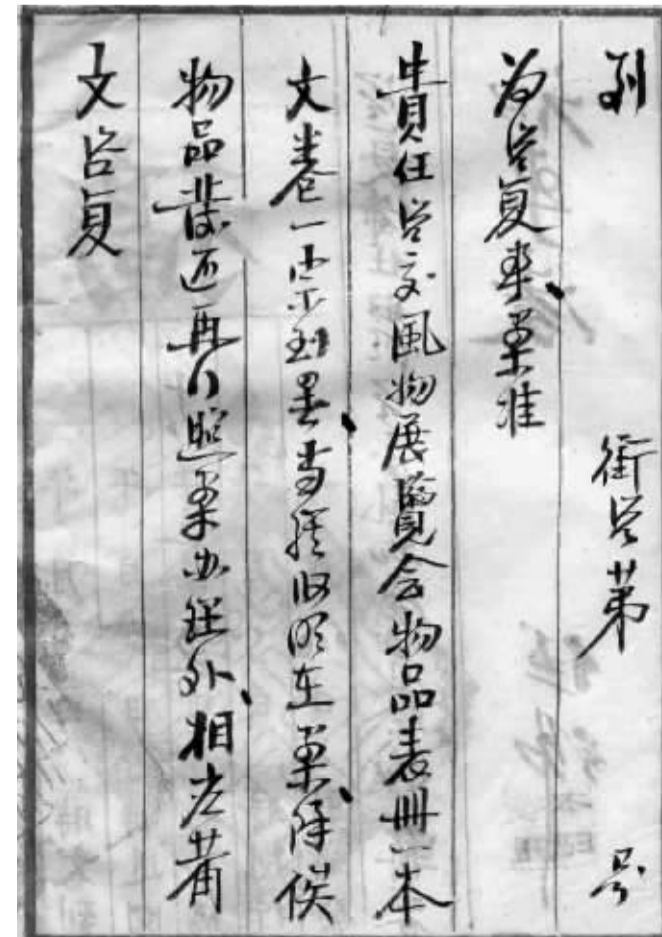 列 衔咨第 号
为咨复事案准
贵任咨交风物展览会物品表册一本
文卷一宗到署当经收明在案除俟
物品发还再行照案办理外相应备
文咨复